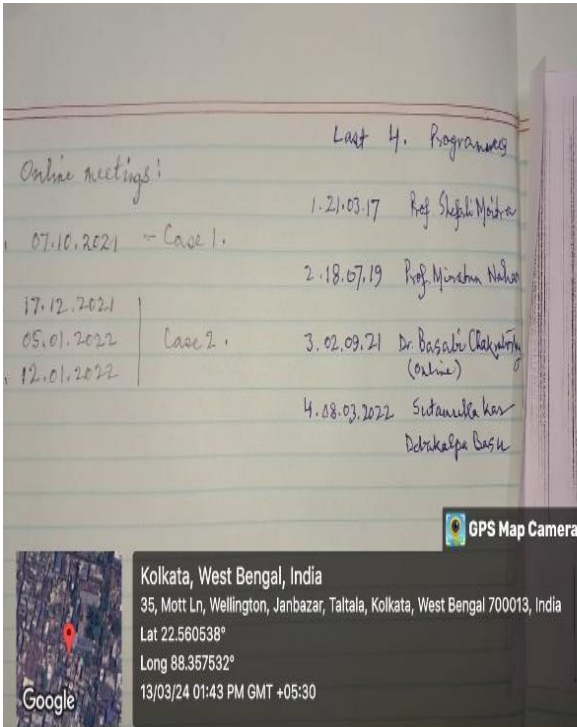 Last 4. Programmes
Online meetings:
07.10.2021 - Case 1.
17.12.2021
05.01.2022 Case 2.
12.01.2022
1. 21.03.17 Prof. Shefali Moitra
2. 18.07.19 Prof. Miratun Nahar
3. 02.09.21 Dr. Basabi Chakraborty
(Online)
4. 08.03.2022 Sutanuka Kar
Debikalpa Basu
GPS Map Camera
Kolkata, West Bengal, India
35, Mott Ln, Wellington, Janbazar, Taltala, Kolkata, West Bengal 700013, India
Lat 22.560538°
Long 88.357532°
13/03/24 01:43 PM GMT +05:30
Google